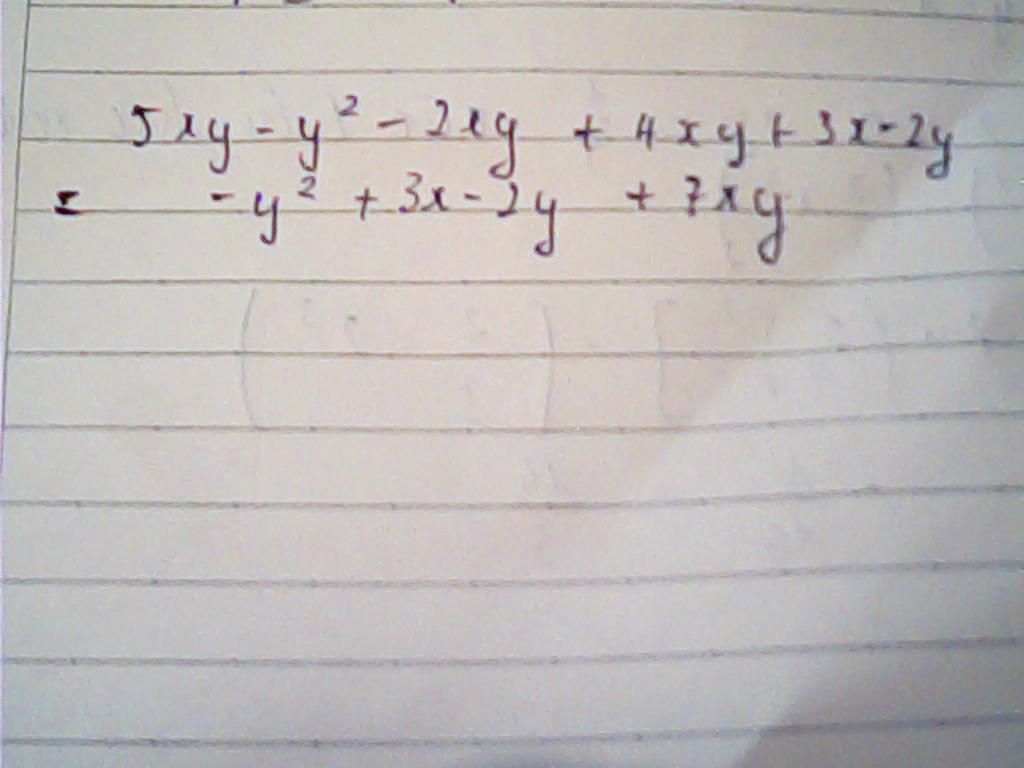 5xy - y² - 2xy + 4xy + 3x - 2y
= - y² + 3x - 2y + 7xy